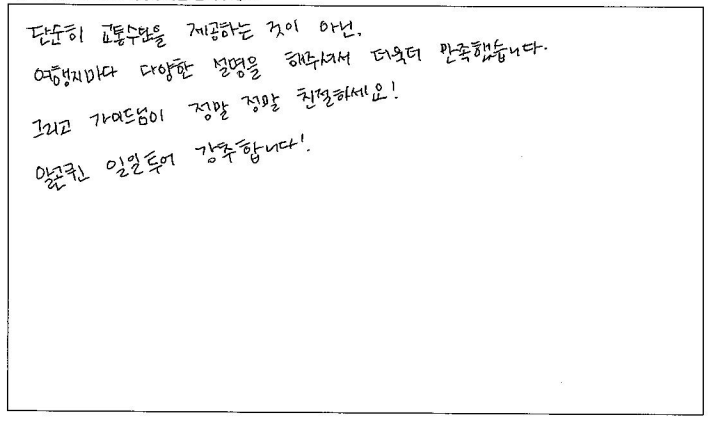 단순히 교통수단을 제공하는 것이 아닌,
여행지마다 다양한 설명을 해주셔서 더욱더 만족했습니다.
그리고 가이드님이 정말 정말 친절하세요!
알곤퀸 일일투어 강추합니다!